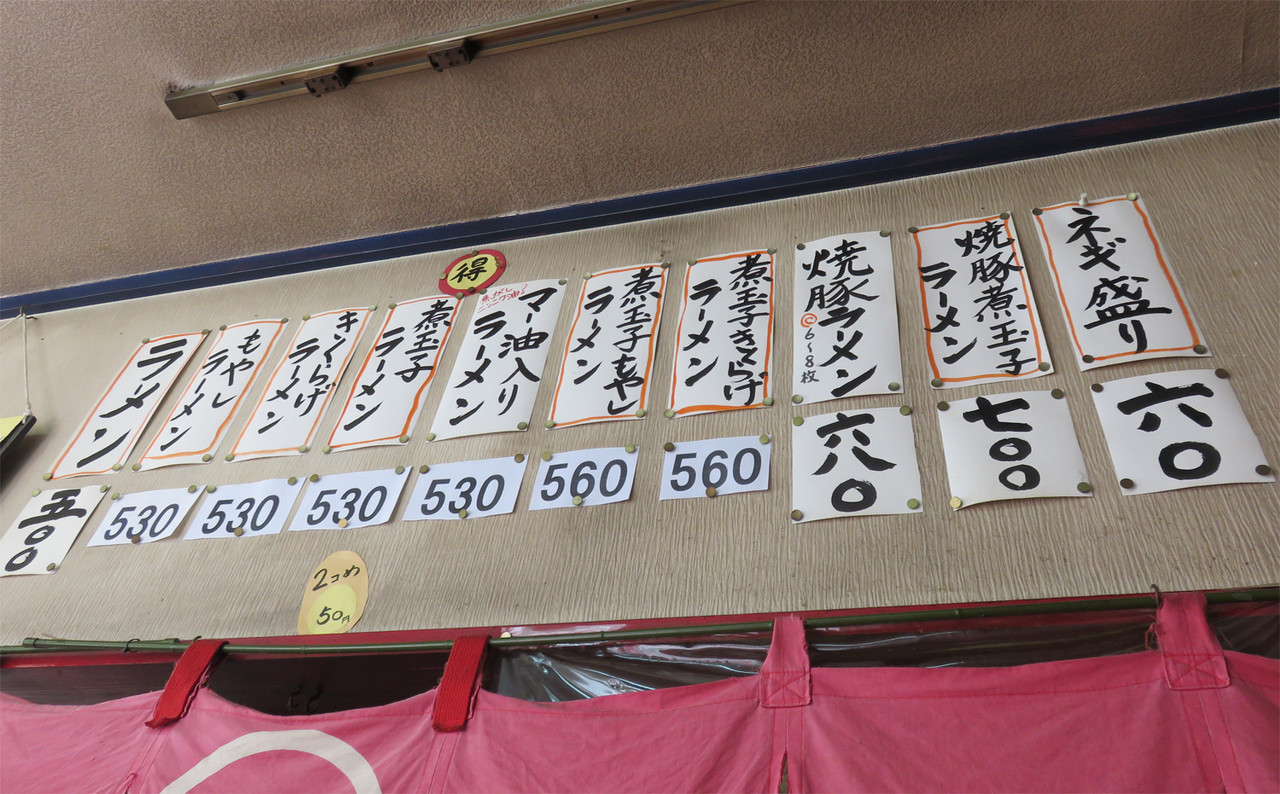 得
ラーメン
五〇〇
もやし
ラーメン
530
きくらげ
ラーメン
530
煮玉子
ラーメン
530
マー油入り
ラーメン
焦がし
ニンニク油!
530
煮玉子もやし
ラーメン
560
煮玉子きくらげ
ラーメン
560
焼豚ラーメン
6〜8枚
六八〇
焼豚煮玉子
ラーメン
七〇〇
ネギ盛り
六〇
2コめ
50円